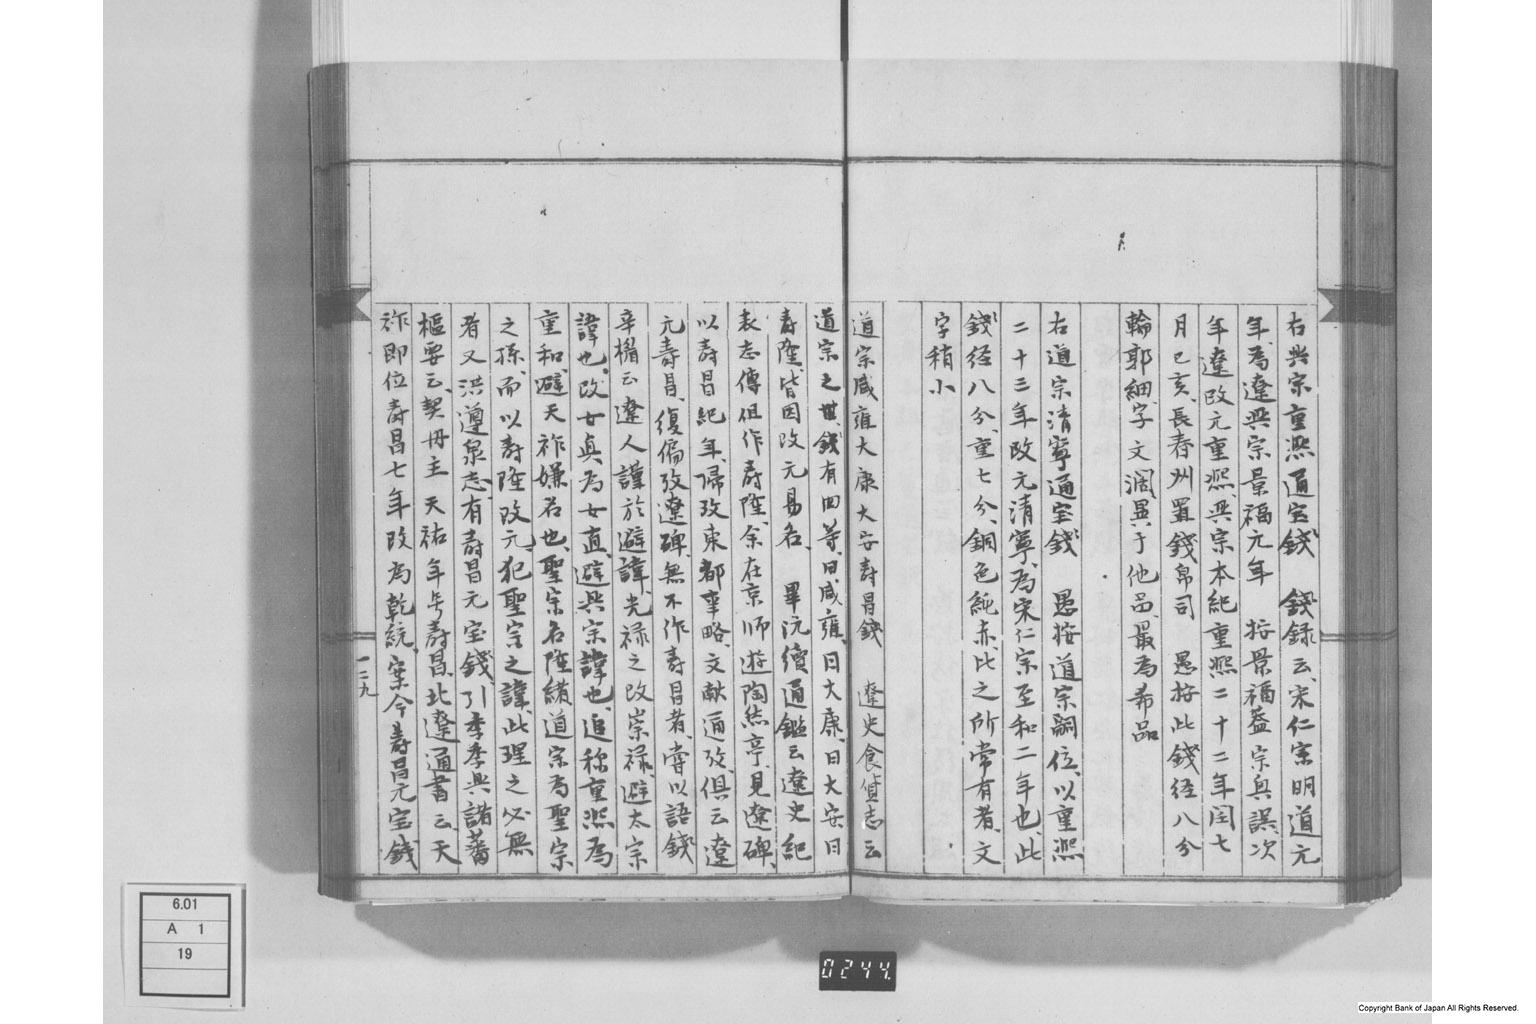 右興宗重熙通宝錢　錢録云、宋仁宗明道元
年、為遼興宗景福元年　按景福蓋宗真誤、次
年遼改元重熙、興宗本紀重熙二十二年閏七
月己亥、長春州置錢帛司　愚按此錢径八分
輪郭細、字文濶、異于他品、最為希品
右道宗清寧通宝錢　愚按道宗嗣位、以重熙
二十三年改元清寧、為宋仁宗至和二年也、此
錢径八分、重七分、銅色純赤、比之所常有者、文
字稍小
道宗咸雍大康大安寿昌錢　遼史食貨志云
道宗之世、錢有四等、曰咸雍、曰大康、曰大安、曰
寿隆、皆因改元易名、　畢沅續通鑑云遼史紀
表志傳俱作寿隆、余在京师遊陶然亭、見遼碑、
以寿昌紀年、帰攷東都事略、文献通攷、俱云遼
元寿昌、復徧攷遼碑、無不作寿昌者、嘗以語錢
辛楣云、遼人謹於避諱、光禄之改崇禄、避太宗
諱也、改女真、為女直、避興宗諱也、追称重熙、為
重和、避天祚嫌名也、聖宗名隆緒、道宗為聖宗
之孫、而以寿隆改元、犯聖宗之諱、此理之必無
者、又洪遵泉志、有寿昌元宝錢、引李季興諸蕃
樞要云、契丹主　天祐年号寿昌、北遼通書云、天
祚即位寿昌七年改為乾統、案今寿昌元宝錢
一二九
6.01
A 1
19
0244.
Copyright Bank of Japan All Rights Reserved.